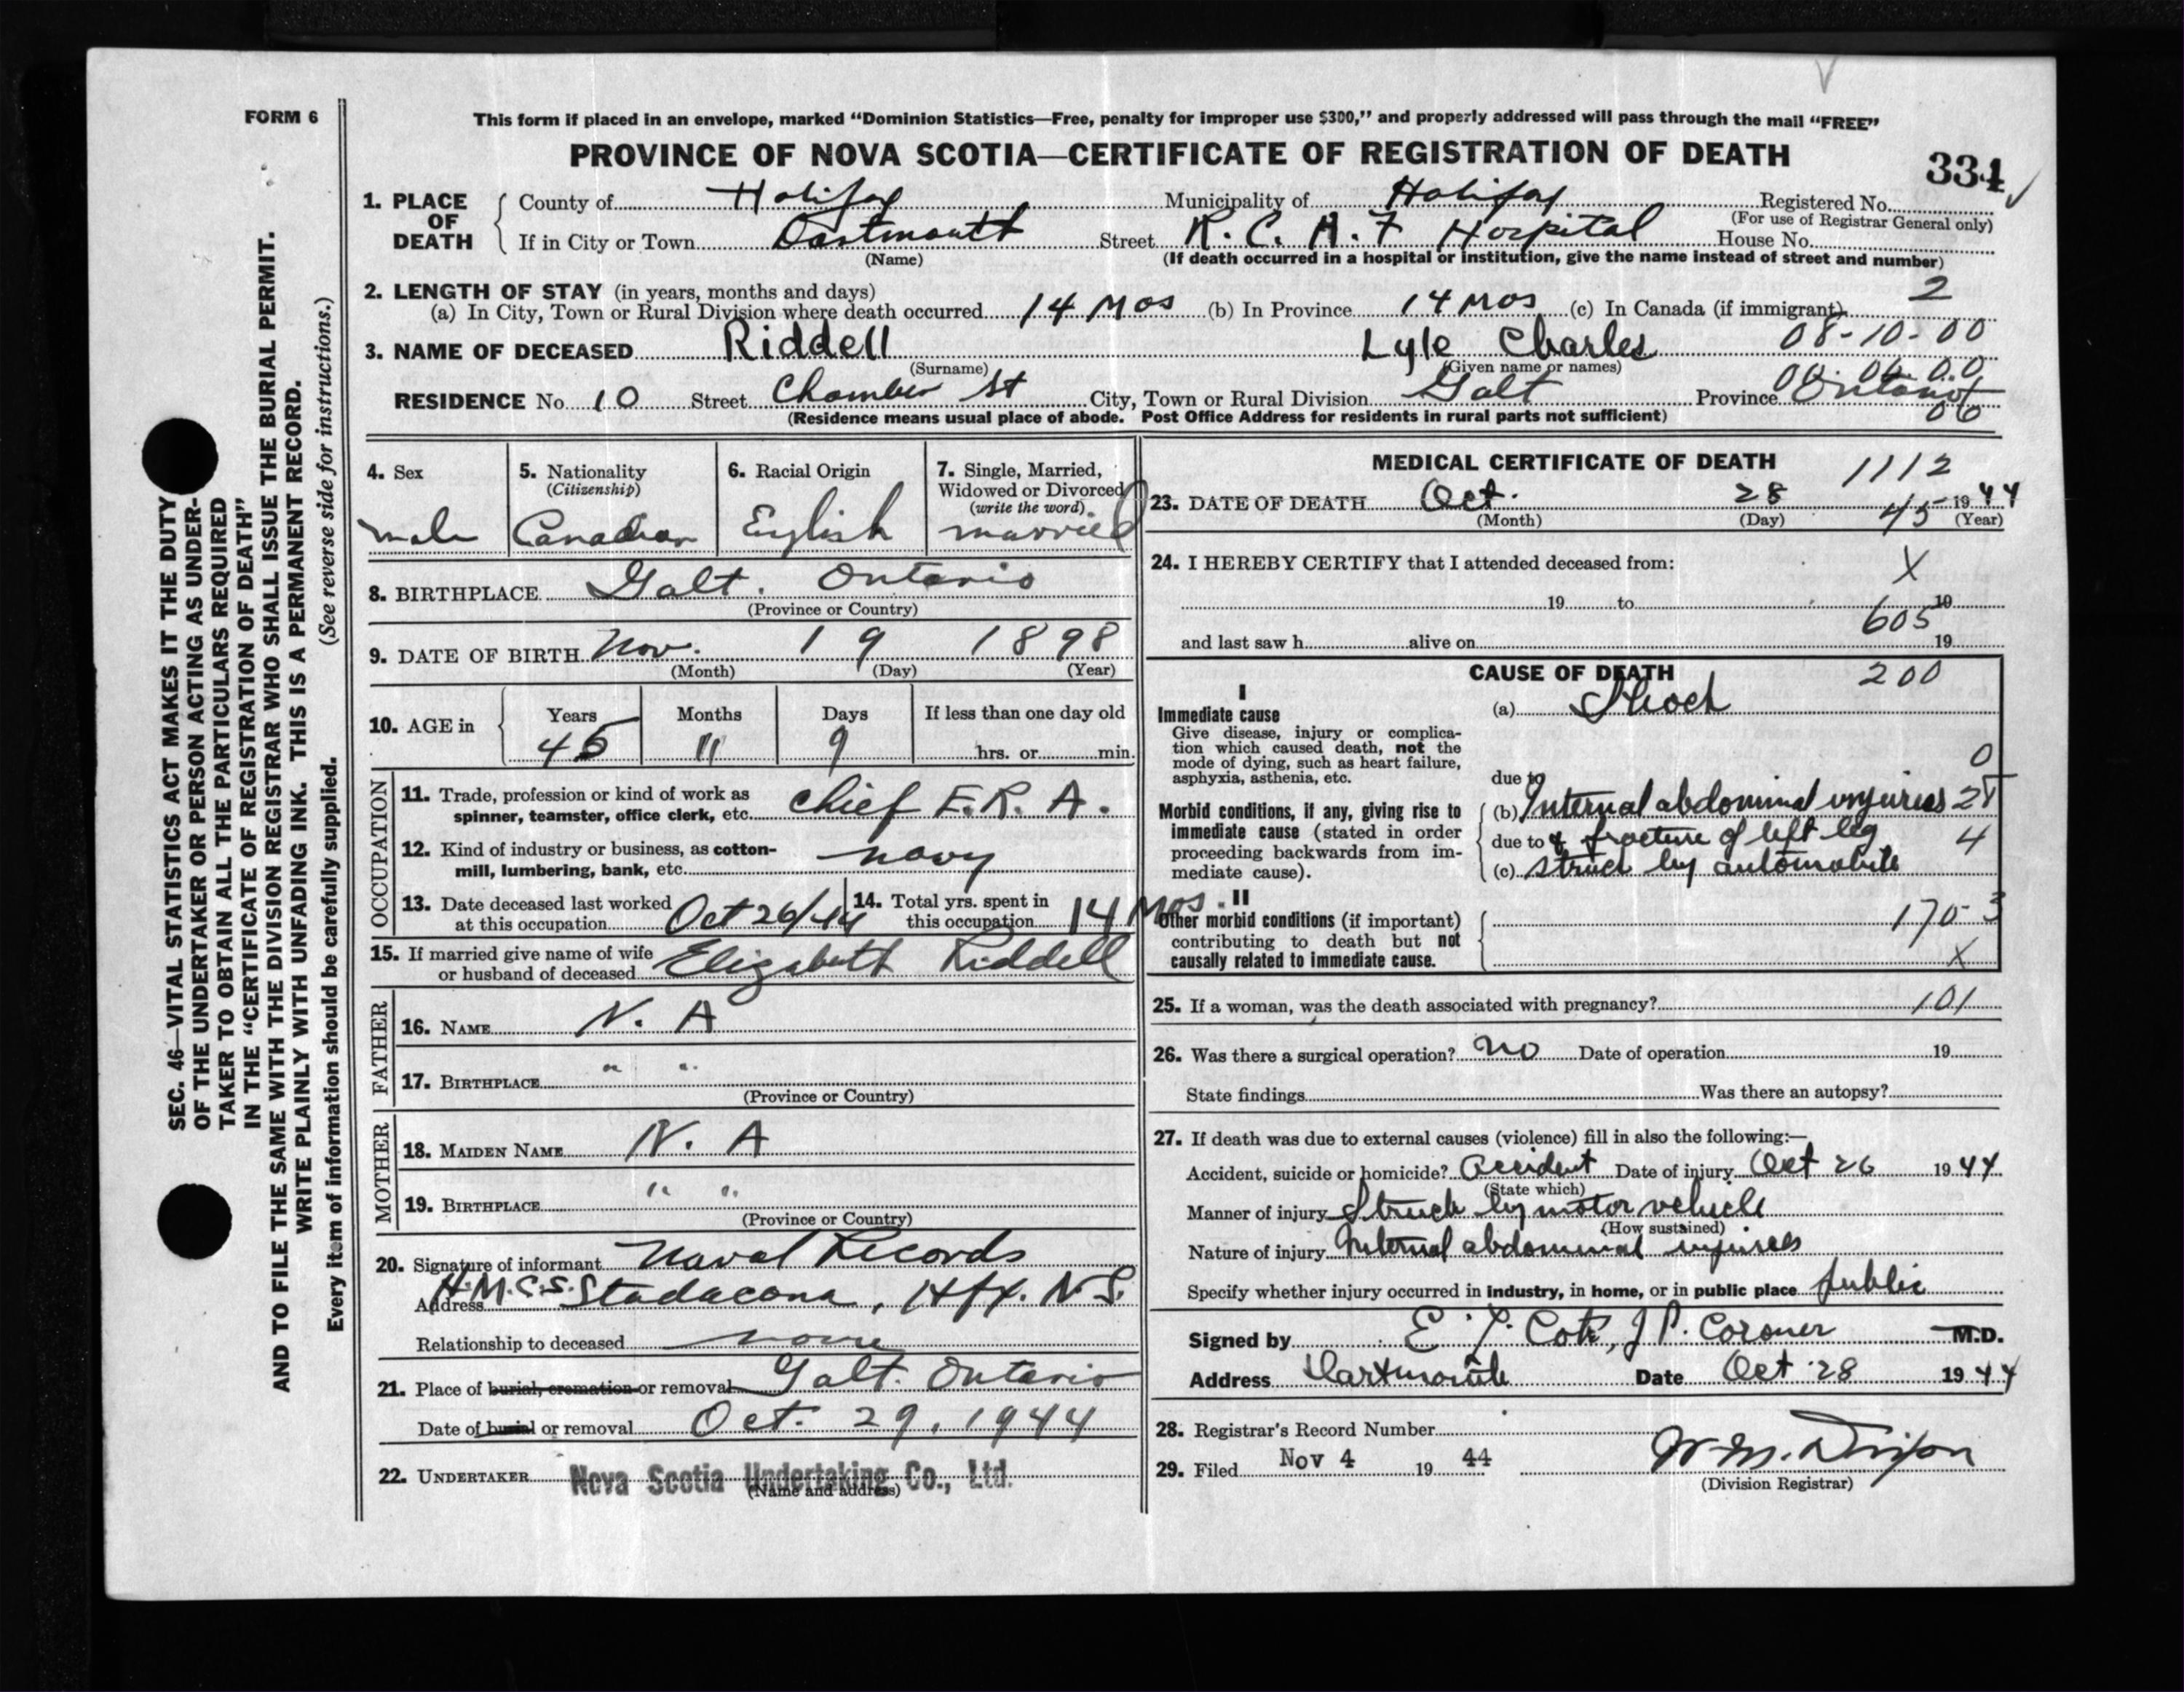 FORM 6
This form if placed in an envelope, marked "Dominion Statistics—Free, penalty for improper use $300," and properly addressed will pass through the mail "FREE"
PROVINCE OF NOVA SCOTIA—CERTIFICATE OF REGISTRATION OF DEATH
334
1. PLACE OF DEATH
County of Halifax Municipality of Halifax Registered No.
(For use of Registrar General only)
If in City or Town Dartmouth Street R.C.A.F Hospital House No.
(Name) (If death occurred in a hospital or institution, give the name instead of street and number)
2. LENGTH OF STAY (in years, months and days) 2
(a) In City, Town or Rural Division where death occurred 14 Mos (b) In Province 14 Mos (c) In Canada (if immigrant)
08-10-00
3. NAME OF DECEASED Riddell Lyle Charles
(Surname) (Given name or names)
RESIDENCE No. 10 Street Chamber St City, Town or Rural Division Galt Province Ontario
(Residence means usual place of abode. Post Office Address for residents in rural parts not sufficient)
4. Sex
male
5. Nationality
(Citizenship)
Canadian
6. Racial Origin
English
7. Single, Married,
Widowed or Divorced
(write the word)
married
8. BIRTHPLACE Galt. Ontario
(Province or Country)
9. DATE OF BIRTH Nov. 19 1898
(Month) (Day) (Year)
10. AGE in Years Months Days If less than one day old
45 11 9 hrs. or min.
OCCUPATION
11. Trade, profession or kind of work as
spinner, teamster, office clerk, etc. Chief E.R.A.
12. Kind of industry or business, as cotton-
mill, lumbering, bank, etc. navy
13. Date deceased last worked
at this occupation Oct 26/44
14. Total yrs. spent in
this occupation 14 Mos.
15. If married give name of wife
or husband of deceased Elizabeth Riddell
FATHER
16. NAME N. A
17. BIRTHPLACE " "
(Province or Country)
MOTHER
18. MAIDEN NAME N. A
19. BIRTHPLACE " "
(Province or Country)
20. Signature of informant Naval Records
Address H.M.C.S. Stadacona, Hfx. N.S.
Relationship to deceased none
21. Place of burial, cremation or removal Galt. Ontario
Date of burial or removal Oct. 29, 1944
22. UNDERTAKER Nova Scotia Undertaking Co., Ltd.
(Name and address)
MEDICAL CERTIFICATE OF DEATH
1112
23. DATE OF DEATH Oct. 28 1944
(Month) (Day) (Year)
45
24. I HEREBY CERTIFY that I attended deceased from: X
19 to 19
605
and last saw h alive on 19
CAUSE OF DEATH 200
I
Immediate cause
Give disease, injury or complica-
tion which caused death, not the
mode of dying, such as heart failure,
asphyxia, asthenia, etc.
(a) Shock
0
due to
Morbid conditions, if any, giving rise to
immediate cause (stated in order
proceeding backwards from im-
mediate cause).
(b) Internal abdominal injuries
due to & fracture of left leg 4
(c) struck by automobile
II
Other morbid conditions (if important)
contributing to death but not
causally related to immediate cause.
170-3
X
25. If a woman, was the death associated with pregnancy? 101
26. Was there a surgical operation? no Date of operation 19
State findings Was there an autopsy?
27. If death was due to external causes (violence) fill in also the following:—
Accident, suicide or homicide? Accident Date of injury Oct 26 1944
(State which)
Manner of injury Struck by motor vehicle
(How sustained)
Nature of injury Internal abdominal injuries
Specify whether injury occurred in industry, in home, or in public place public
Signed by E. Cote, J.P. Coroner M.D.
Address Dartmouth Date Oct 28 1944
28. Registrar's Record Number
29. Filed Nov 4 19 44 W. M. Dixon
(Division Registrar)
SEC. 46—VITAL STATISTICS ACT MAKES IT THE DUTY
OF THE UNDERTAKER OR PERSON ACTING AS UNDER-
TAKER TO OBTAIN ALL THE PARTICULARS REQUIRED
IN THE "CERTIFICATE OF REGISTRATION OF DEATH"
AND TO FILE THE SAME WITH THE DIVISION REGISTRAR WHO SHALL ISSUE THE BURIAL PERMIT.
WRITE PLAINLY WITH UNFADING INK. THIS IS A PERMANENT RECORD.
Every item of information should be carefully supplied. (See reverse side for instructions.)